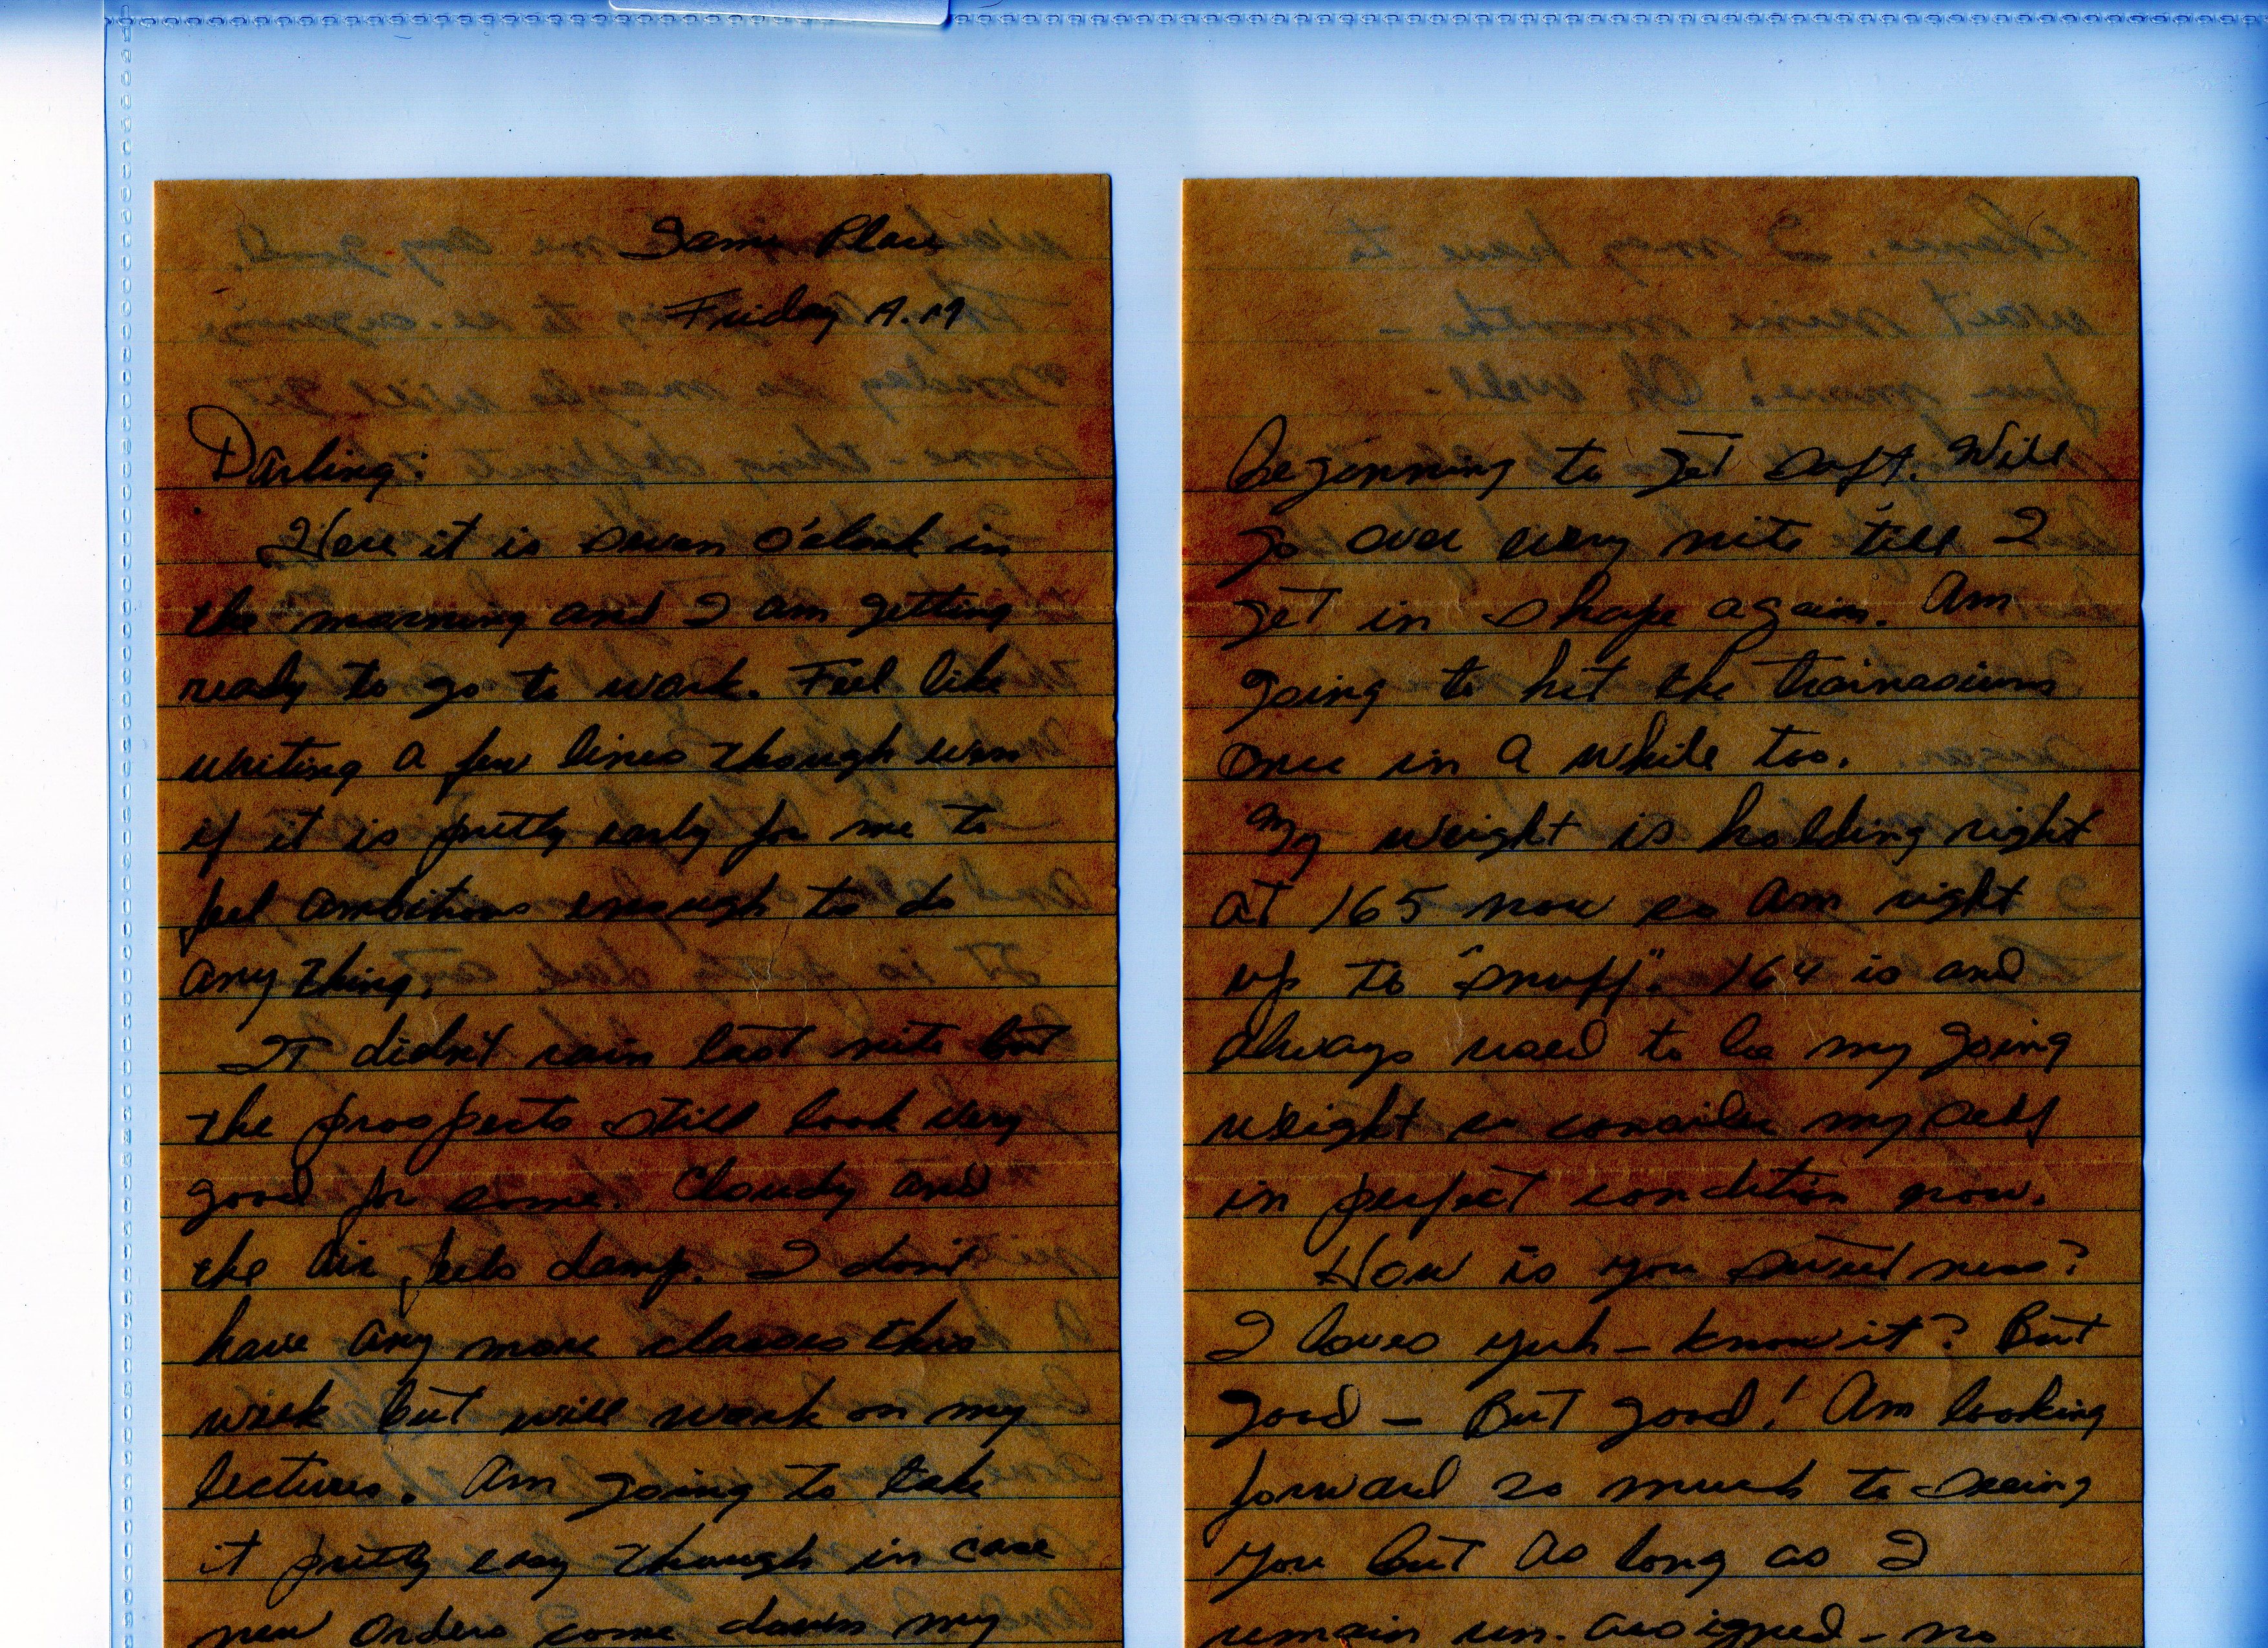 Same Place
Friday A.M
Darling:
Here it is seven o'clock in
the morning and I am getting
ready to go to work. Feel like
writing a few lines though even
if it is pretty early for me to
feel ambitious enough to do
any thing.
It didn't rain last nite but
the prospects still look very
good for some. Cloudy and
the air feels damp. I don't
have any more classes this
week but will work on my
lectures. Am going to take
it pretty easy though in case
new orders come down my
beginning to get soft. Will
go over every nite till I
get in shape again. Am
going to hit the trainasiums
once in a while too.
My weight is holding right
at 165 now so am right
up to "snuff". 164 is and
always used to be my going
weight so consider my self
in perfect condition now.
How is you sweet ness?
I loves yuh - know it? But
good - But good! Am looking
forward so much to seeing
you but as long as I
remain un-assigned - no